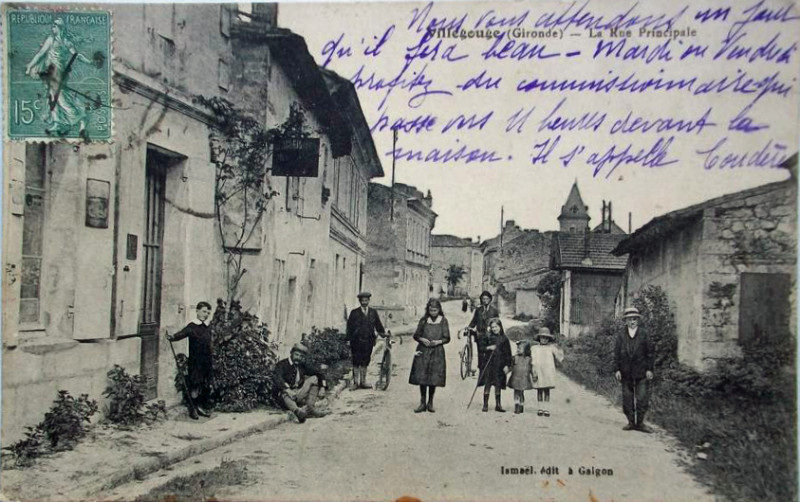 RÉPUBLIQUE FRANÇAISE
15c POSTES
Nous vous attendons un jour
Villegouge (Gironde) — La Rue Principale
qu'il fera beau — Mardi ou Vendredi
profitez du commissionnaire qui
passe vers 11 heures devant la
maison. Il s'appelle Coudère
Ismaël. édit à Galgon